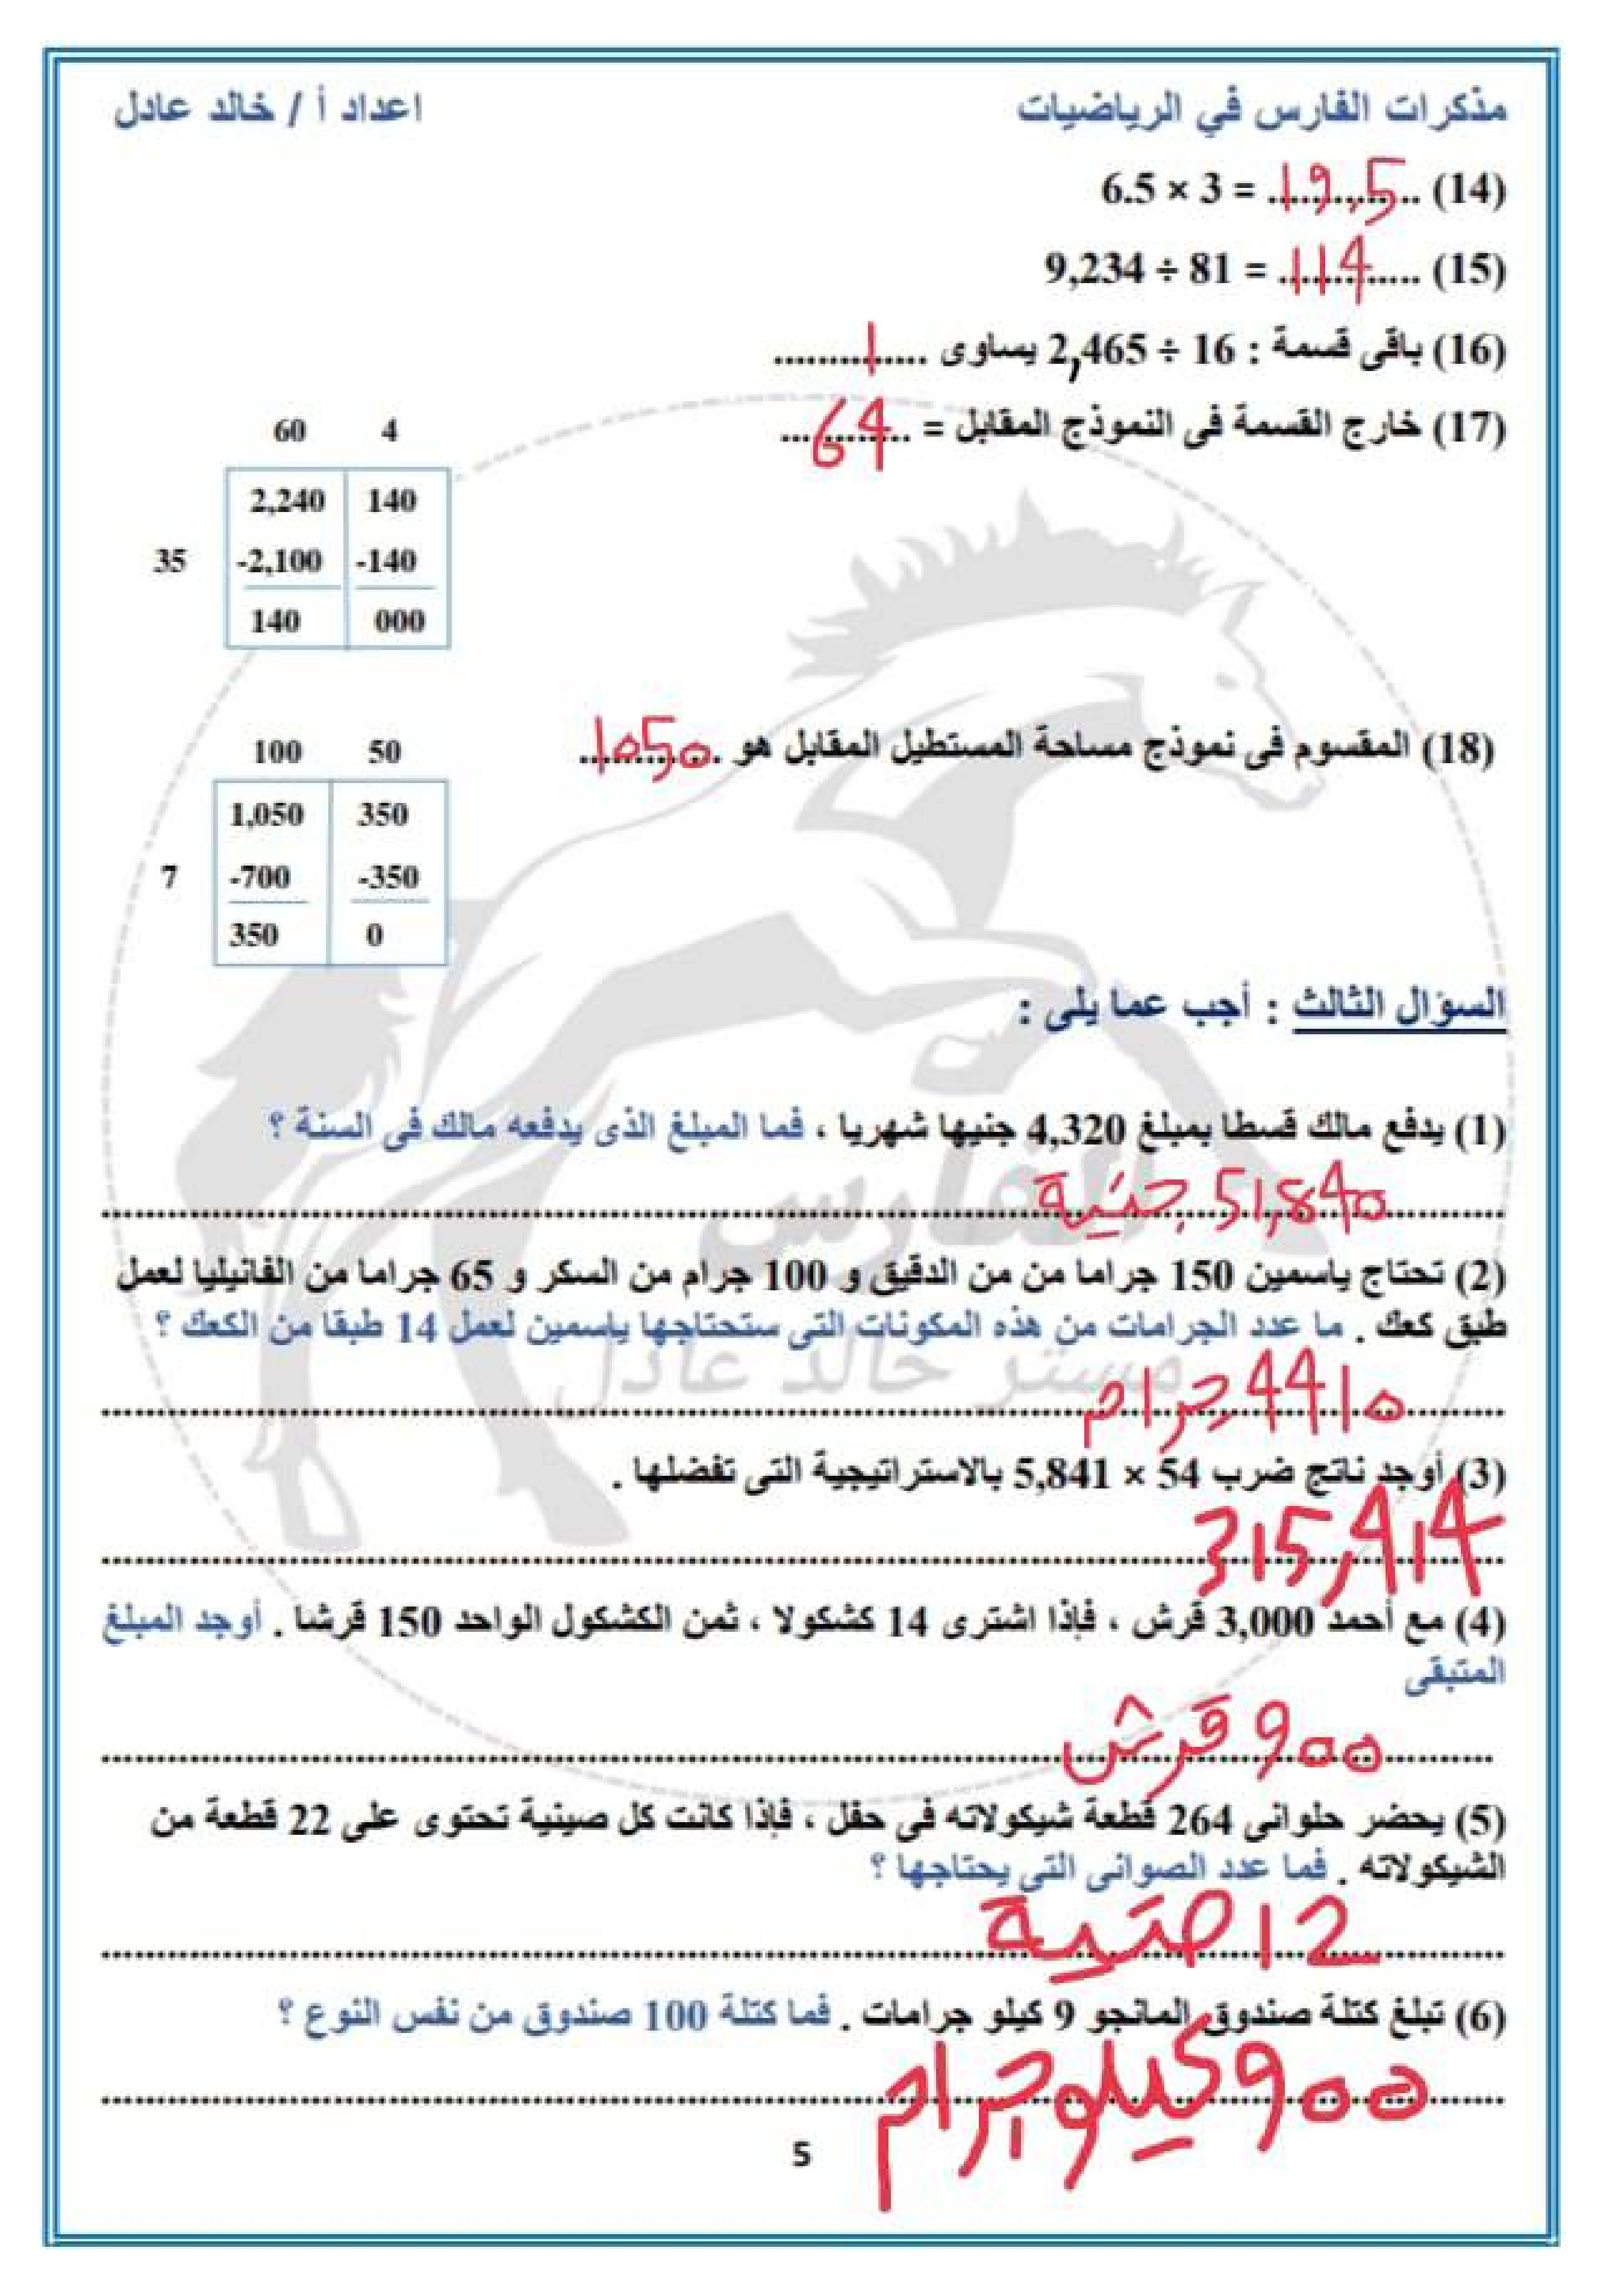 مذكرات الفارس في الرياضيات
اعداد أ / خالد عادل
(14) 6.5 × 3 = 19,5
(15) 9,234 ÷ 81 = 114
(16) باقى قسمة : 16 ÷ 2,465 يساوى 1
(17) خارج القسمة فى النموذج المقابل = 64
60 4
2,240 140
35 -2,100 -140
140 000
(18) المقسوم فى نموذج مساحة المستطيل المقابل هو 1050
100 50
1,050 350
7 -700 -350
350 0
السؤال الثالث : أجب عما يلى :
(1) يدفع مالك قسطا بمبلغ 4,320 جنيها شهريا ، فما المبلغ الذى يدفعه مالك فى السنة ؟
51,840 جنية
(2) تحتاج ياسمين 150 جراما من من الدقيق و 100 جرام من السكر و 65 جراما من الفانيليا لعمل
طبق كعك . ما عدد الجرامات من هذه المكونات التى ستحتاجها ياسمين لعمل 14 طبقا من الكعك ؟
4410 جرام
(3) أوجد ناتج ضرب 54 × 5,841 بالاستراتيجية التى تفضلها .
315,414
(4) مع أحمد 3,000 قرش ، فإذا اشترى 14 كشكولا ، ثمن الكشكول الواحد 150 قرشا . أوجد المبلغ
المتبقى
900 قرش
(5) يحضر حلوانى 264 قطعة شيكولاته فى حفل ، فإذا كانت كل صينية تحتوى على 22 قطعة من
الشيكولاته . فما عدد الصوانى التى يحتاجها ؟
12 صنية
(6) تبلغ كتلة صندوق المانجو 9 كيلو جرامات . فما كتلة 100 صندوق من نفس النوع ؟
900 كيلو جرام
الفارس
مستر خالد عادل
5